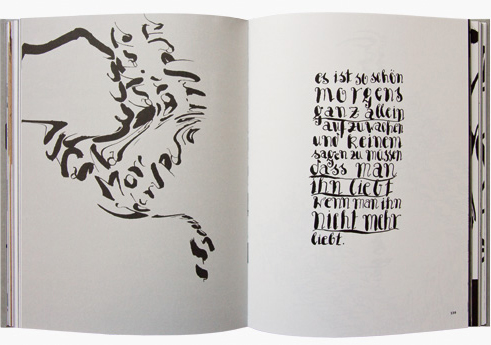 es ist so schön
morgens
ganz allein
aufzuwachen
und keinem
sagen zu müssen
dass man
ihn liebt
wenn man ihn
nicht mehr
liebt.